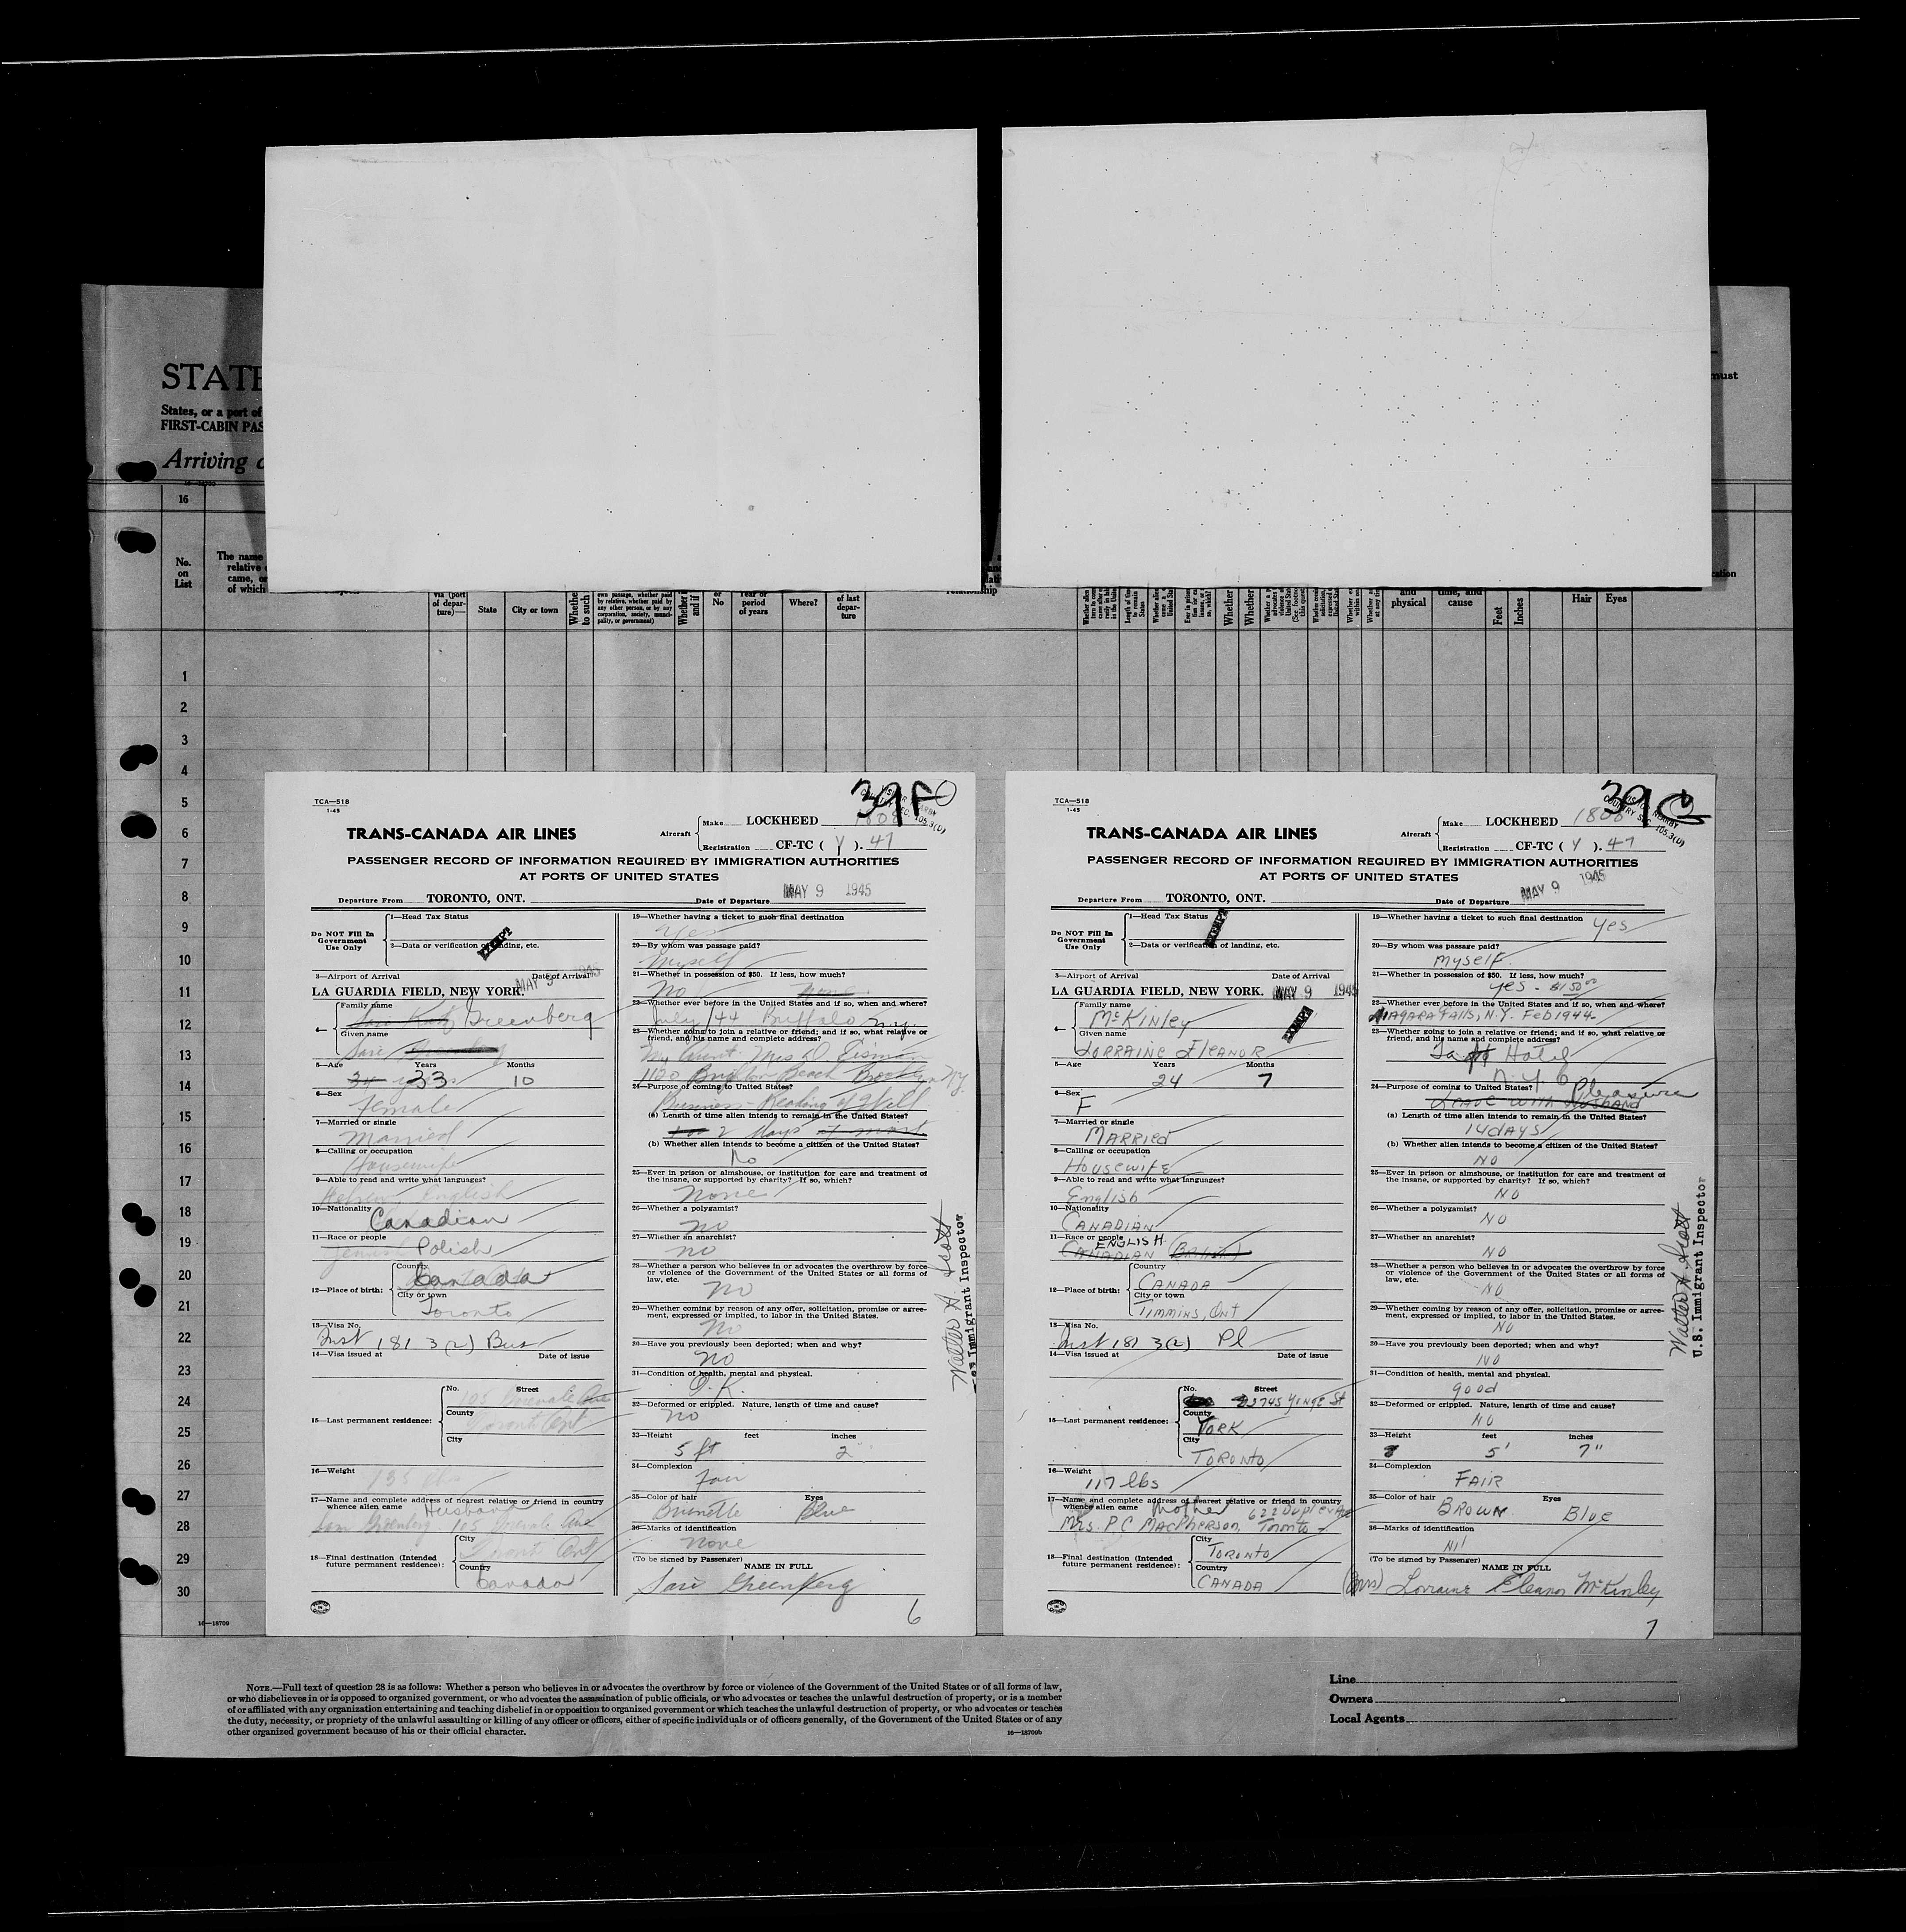 STATE
must
States, or a port of
FIRST-CABIN PAS
Arriving
16—18709
16
No.
on
List
The name
relative
came, or
of which
via (port
of depar-
ture)—
State
City or town
Whether
to such
own passage, whether paid
by relative, whether paid by
any other person, or by any
corporation, society, munici-
pality, or government)
Whether
and if
or
No
Year or
period
of years
Where?
of last
depar-
ture
Whether
Whether
and
physical
time, and
cause
Feet
Inches
Hair
Eyes
1
2
3
4
5
6
7
8
9
10
11
12
13
14
15
16
17
18
19
20
21
22
23
24
25
26
27
28
29
30
16—18709
TCA—518
1-45
39F
TRANS-CANADA AIR LINES
Aircraft
Make LOCKHEED 1808
Registration CF-TC ( Y ). 47
PASSENGER RECORD OF INFORMATION REQUIRED BY IMMIGRATION AUTHORITIES
AT PORTS OF UNITED STATES
Departure From TORONTO, ONT. Date of Departure MAY 9 1945
Do NOT Fill In
Government
Use Only
1—Head Tax Status
2—Data or verification of landing, etc.
EXEMPT
3—Airport of Arrival Date of Arrival
LA GUARDIA FIELD, NEW YORK. MAY 9 1945
4—
Family name
Greenberg
Given name
Sari
5—Age Years Months
33 10
6—Sex
Female
7—Married or single
Married
8—Calling or occupation
Housewife
9—Able to read and write what languages?
Hebrew English
10—Nationality
Canadian
11—Race or people
Jewish Polish
12—Place of birth:
Country
Canada
City or town
Toronto
13—Visa No.
Inst 181 3(2) Bus
14—Visa issued at Date of issue
15—Last permanent residence:
No. Street
105 Ave
County
Toronto Ont
City
16—Weight
135 lbs
17—Name and complete address of nearest relative or friend in country
whence alien came Husband
Sam Greenberg 105 Ave
18—Final destination (Intended
future permanent residence):
City
Toronto Ont
Country
Canada
19—Whether having a ticket to such final destination
Yes
20—By whom was passage paid?
Myself
21—Whether in possession of $50. If less, how much?
No
22—Whether ever before in the United States and if so, when and where?
July /44 Buffalo N.Y.
23—Whether going to join a relative or friend; and if so, what relative or
friend, and his name and complete address?
My Aunt. Mrs D. Tisman
1120 Brighton Beach Brooklyn N.Y.
24—Purpose of coming to United States?
Business - Reading of Will
(a) Length of time alien intends to remain in the United States?
2 days
(b) Whether alien intends to become a citizen of the United States?
No
25—Ever in prison or almshouse, or institution for care and treatment of
the insane, or supported by charity? If so, which?
None
26—Whether a polygamist?
no
27—Whether an anarchist?
no
28—Whether a person who believes in or advocates the overthrow by force
or violence of the Government of the United States or all forms of
law, etc.
No
29—Whether coming by reason of any offer, solicitation, promise or agree-
ment, expressed or implied, to labor in the United States.
No
30—Have you previously been deported; when and why?
no
31—Condition of health, mental and physical.
O.K.
32—Deformed or crippled. Nature, length of time and cause?
no
33—Height feet inches
5 ft 2"
34—Complexion
Fair
35—Color of hair Eyes
Brunette Blue
36—Marks of identification
none
(To be signed by Passenger) NAME IN FULL
Sari Greenberg
6
Walter H. Scott
U.S. Immigrant Inspector
TCA—518
1-45
39G
TRANS-CANADA AIR LINES
Aircraft
Make LOCKHEED 1808
Registration CF-TC ( Y ). 47
PASSENGER RECORD OF INFORMATION REQUIRED BY IMMIGRATION AUTHORITIES
AT PORTS OF UNITED STATES
Departure From TORONTO, ONT. Date of Departure MAY 9 1945
Do NOT Fill In
Government
Use Only
1—Head Tax Status
2—Data or verification of landing, etc.
EXEMPT
3—Airport of Arrival Date of Arrival
LA GUARDIA FIELD, NEW YORK. MAY 9 1945
4—
Family name
McKinley
EXEMPT
Given name
LORRAINE ELEANOR
5—Age Years Months
24 7
6—Sex
F
7—Married or single
MARRIED
8—Calling or occupation
HOUSEWIFE
9—Able to read and write what languages?
English
10—Nationality
CANADIAN
11—Race or people
ENGLISH
CANADIAN (British)
12—Place of birth:
Country
CANADA
City or town
TIMMINS, Ont
13—Visa No.
Inst 181 3(2) Pl
14—Visa issued at Date of issue
15—Last permanent residence:
No. Street
2745 Yonge St
County
YORK
City
TORONTO
16—Weight
117 lbs
17—Name and complete address of nearest relative or friend in country
whence alien came Mother 622 Duplex Ave
Mrs. P.C MacPherson, Toronto
18—Final destination (Intended
future permanent residence):
City
TORONTO
Country
CANADA
19—Whether having a ticket to such final destination
yes
20—By whom was passage paid?
myself
21—Whether in possession of $50. If less, how much?
yes - $150.00
22—Whether ever before in the United States and if so, when and where?
NIAGARA FALLS, N.Y. Feb 1944
23—Whether going to join a relative or friend; and if so, what relative or
friend, and his name and complete address?
Taft Hotel
N.Y.C
24—Purpose of coming to United States? Pleasure
LEAVE WITH HUSBAND
(a) Length of time alien intends to remain in the United States?
14 DAYS
(b) Whether alien intends to become a citizen of the United States?
NO
25—Ever in prison or almshouse, or institution for care and treatment of
the insane, or supported by charity? If so, which?
NO
26—Whether a polygamist?
NO
27—Whether an anarchist?
NO
28—Whether a person who believes in or advocates the overthrow by force
or violence of the Government of the United States or all forms of
law, etc.
NO
29—Whether coming by reason of any offer, solicitation, promise or agree-
ment, expressed or implied, to labor in the United States.
NO
30—Have you previously been deported; when and why?
NO
31—Condition of health, mental and physical.
good
32—Deformed or crippled. Nature, length of time and cause?
NO
33—Height feet inches
5' 7"
34—Complexion
FAIR
35—Color of hair Eyes
BROWN Blue
36—Marks of identification
Nil
(To be signed by Passenger) NAME IN FULL
(Mrs) Lorraine Eleanor McKinley
7
Walter H Scott
U.S. Immigrant Inspector
NOTE.—Full text of question 28 is as follows: Whether a person who believes in or advocates the overthrow by force or violence of the Government of the United States or of all forms of law,
or who disbelieves in or is opposed to organized government, or who advocates the assassination of public officials, or who advocates or teaches the unlawful destruction of property, or is a member
of or affiliated with any organization entertaining and teaching disbelief in or opposition to organized government or which teaches the unlawful destruction of property, or who advocates or teaches
the duty, necessity, or propriety of the unlawful assaulting or killing of any officer or officers, either of specific individuals or of officers generally, of the Government of the United States or of any
other organized government because of his or their official character.
16—18709b
Line
Owners
Local Agents